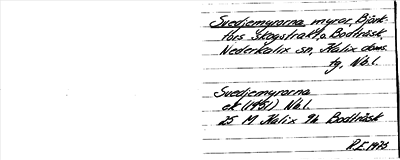 Svedjemyrarna myrar, Björk-
fors Skogstrakt, o. Bodträsk,
Nederkalix sn, Kalix doms.
tg, Nb.l.
Svedjemyrarna
ek (1951) Nb.l.
25 M Kalix 9b Bodträsk
R.E. 1975